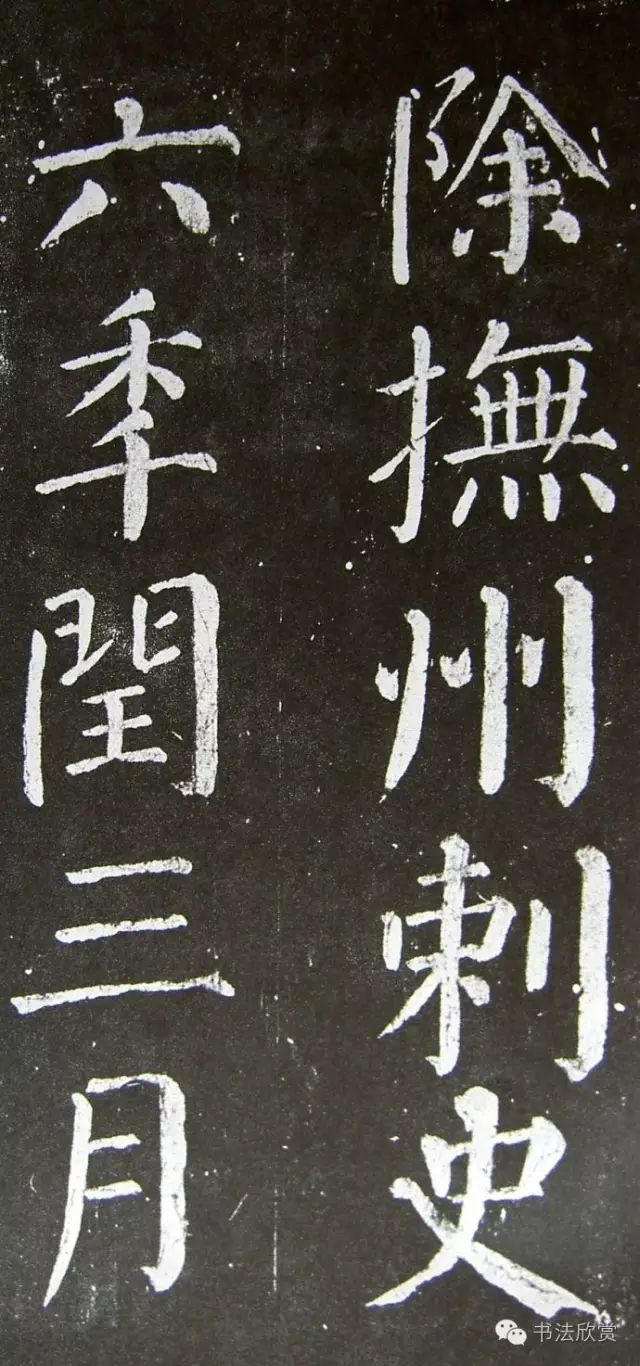 除撫州刺史
六秊閏三月
书法欣赏